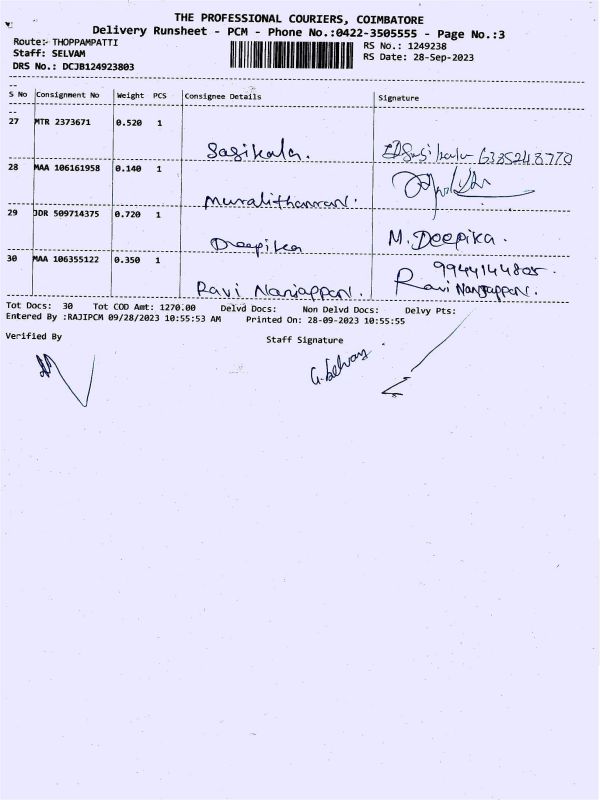 THE PROFESSIONAL COURIERS, COIMBATORE
Delivery Runsheet - PCM - Phone No.:0422-3505555 - Page No.:3
Route:- THOPPAMPATTI
RS No.: 1249238
Staff: SELVAM
RS Date: 28-Sep-2023
DRS No.: DCJB124923803
S No Consignment No Weight PCS Consignee Details Signature
27 MTR 2373671 0.520 1
Sasikala. Sasikala 6385248770
28 MAA 106161958 0.140 1
Muralitharan.
29 JDR 509714375 0.720 1
Deepika M. Deepika.
30 MAA 106355122 0.350 1 9944144805.
Ravi Nanjappan. Ravi Nanjappan.
Tot Docs: 30 Tot COD Amt: 1270.00 Delvd Docs: Non Delvd Docs: Delvy Pts:
Entered By :RAJIPCM 09/28/2023 10:55:53 AM Printed On: 28-09-2023 10:55:55
Verified By Staff Signature
G. Selvam